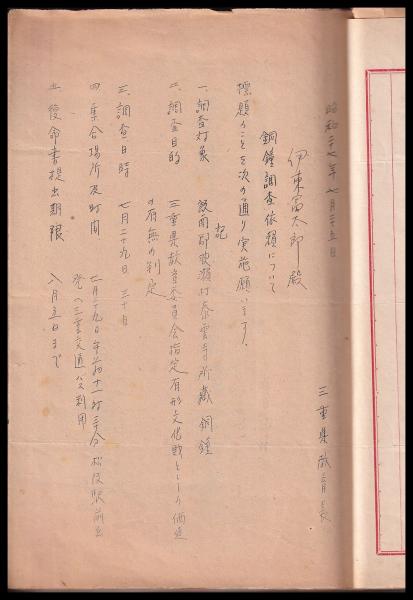 昭和二十七年七月二十五日
三重県教育長
伊東富太郎殿
銅鐘調査依頼について
標題のことを次の通り実施願います、
記
一、調査対象 飯南郡波瀬村泰雲寺所蔵銅鐘
二、調査目的 三重県教育委員会指定有形文化財としての価値
の有無の判定
三、調査日時 七月二十九日 三十日
四、集合場所及時間 七月二十九日午前十一時三十分 松阪駅前
発の三重交通バス利用
五、復命書提出期限 八月五日まで